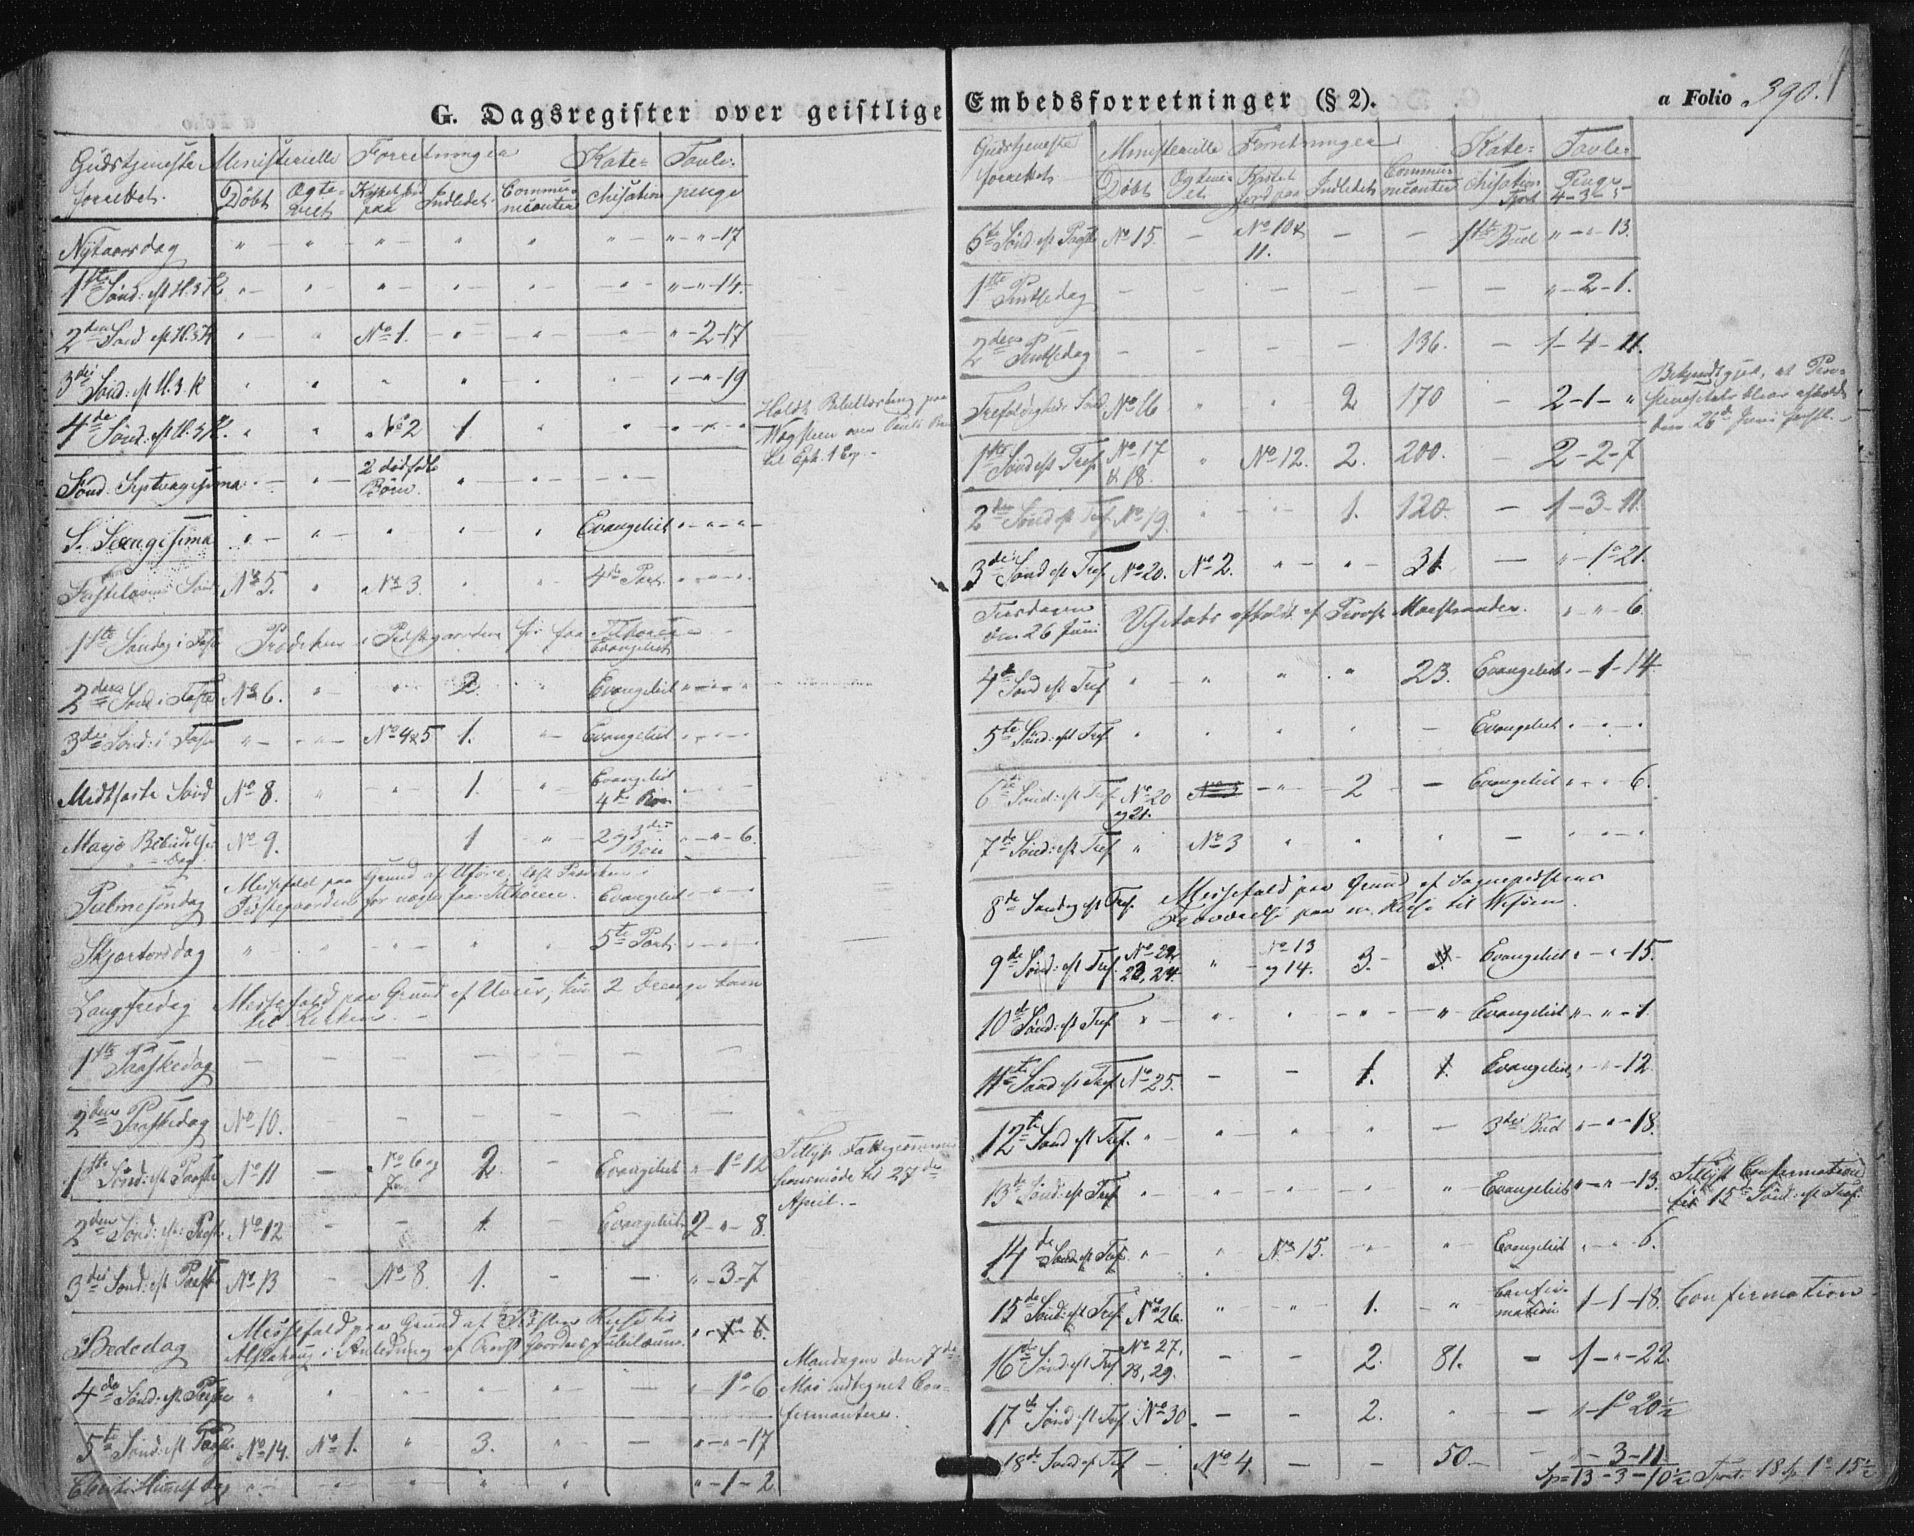 G. Dagsregister over geistlige Embedsforretninger (§ 2).
a Folio 390.
Gudstjeneste Ministerielle Forretninger Kate- Tavle-
forrettet. Døbt Ægte- Indledet Commu- chisation penge
viet paa nicanter
Nytaarsdag " " " " " " " - " - 17
1ste Sønd: eft H. 3 K. " " " " " " " - " - 14.
2den Sønd: eft H. 3 K " " No 1. " " " " - 2 - 17
3die Sønd: eft H. 3 K " " " " " " " - " - 19
4de Sønd: eft H. 3 K. " " No 2 1. " " " - " - "
Holdt Bibellæsning paa
til Eph. 1
Sønd. Septuagesima " " 2 dødfødte " " "
Børn.
S. Sexagesima " " " " " Evangeliet " - " - "
Fastelavns Sønd No 5. " No 3. " " 4de Part. " - " - "
1ste Søndag i Faste Prædiken i Præstgaarden for faa Tilhørere
Evangeliet
2den Sønd: i Faste No 6. " " 2. " Evangeliet " - " - "
3die Sønd: i Faste " " No 4 & 5 1. " Evangeliet " - " - "
Midtfaste Sønd No 8. " " 1. " Evangeliet
4de Bøn
Mariæ Bebudelses No 9. 1 " 2 og 3die " - " - 6.
Dag Bøn
Palmesøndag Messefald paa Grund af Uføre; læst Prædiken i
Præstegaarden for nogle faa Tilhørere. Evangeliet " - " - "
Skjærtorsdag " " " " " 5te Part. " - " - "
Langfredag Messefald paa Grund af Uveir, kun 2 Drenge kom
til Kirken.
1ste Paaskedag - - - - - - -
2den Paaskedag No 10. - - - -
1ste Sønd: eft Paaske No 11 - No 6 og 2. - Evangeliet " - 1 - 12
Tillyst Fattigcommis-
sionsmøde til 27de
April. -
2den Sønd: eft: Paaske No 12 - - 1. Evangeliet 2 - " - 8.
3die Sønd: eft Paaske No 13 - No 8 1. - - " - 3 - 7
Bededag Messefald paa Grund af Præstens Reise til
Alstahaug i Anledning af Jubilæum.
4de Sønd: eft Paaske " " " " " - " - 1 - 6
Mandagen den 7de
Mai indtegnet Con-
firmanter.
5te Sønd: eft Paaske No 14. No 1. " 3. " - " - " - 17
Christi Himmelf: dag " " " " " " - 1 - 2
Gudstjeneste Ministerielle Forretninger Kate- Tavle-
forrettet Døbt Ægtevi- Jordet Indledet Commu- chisation Penge
et. paa nicanter 4 - 3 - 5
6te Sønd: eft Paaske No 15. - No 10 & - - 1ste Bud " - " - 13.
11.
1ste Pintsedag - - - - - - " - 2 - 1.
2den Pintsedag - - - - 136. - 1 - 4 - 11.
Trefoldigheds Sønd. No 16 " " 2 170 - 2 - 1 - "
Bekjendtgjort, at
den 26de Juni
1ste Sønd eft Tref. No 17 " No 12. 2. 200. - 2 - 2 - 7
& 18.
2den Sønd eft Tref. No 19. " " 1. 120. - 1 - 3 - 11.
3die Sønd eft Tref No 20. No 2. " " 31. - " - 1 - 21.
Tirsdagen
den 26 Juni Visitats afholdt af Provst " - " - 6.
4de Sønd eft Tref " " " " 23. Evangeliet " - 1 - 14
5te Sønd: eft Tref. " " " " - Evangeliet " - " - "
6te Sønd: eft Tref. No 20 " 2 - Evangeliet " - " - 6.
og 21.
7de Sønd: eft Tref " No 3 " " " - " - " - "
8de Søndag eft Tref. Messefald paa Grund af Sognepræstens
Fraværelse paa en Reise til
9de Sønd: eft Tref. No 22, " No 13 3. Evangeliet " - " - 15.
23, 24. og 14.
10de Sønd: eft Tref. " " " " " Evangeliet " - " - 1
11te Sønd eft Tref. No 25. - - 1. 1. Evangeliet " - " - 12
12te Sønd eft Tref. " " " " - 3die Bud " - " - 18.
13de Sønd: eft Tref " " " " " Evangeliet " - " - 13.
Tillyst Confirmation
til 15de Sønd: eft Tref.
14de Sønd eft Tref. " " No 15. " " Evangeliet " - " - 6.
15de Sønd: eft Tref No 26. " " 1. " Confir- 1 - 1 - 18. Confirmation
mation
16de Sønd: eft Tref No 27. - - 2. 81. - 1 - " - 22.
28, 29.
17de Sønd eft Tref No 30. - - 2. " - " - 1 - 20½
18de Sønd eft Tref - No 4. - - 50 - - " - 3 - 11
13 - 3 - 10½